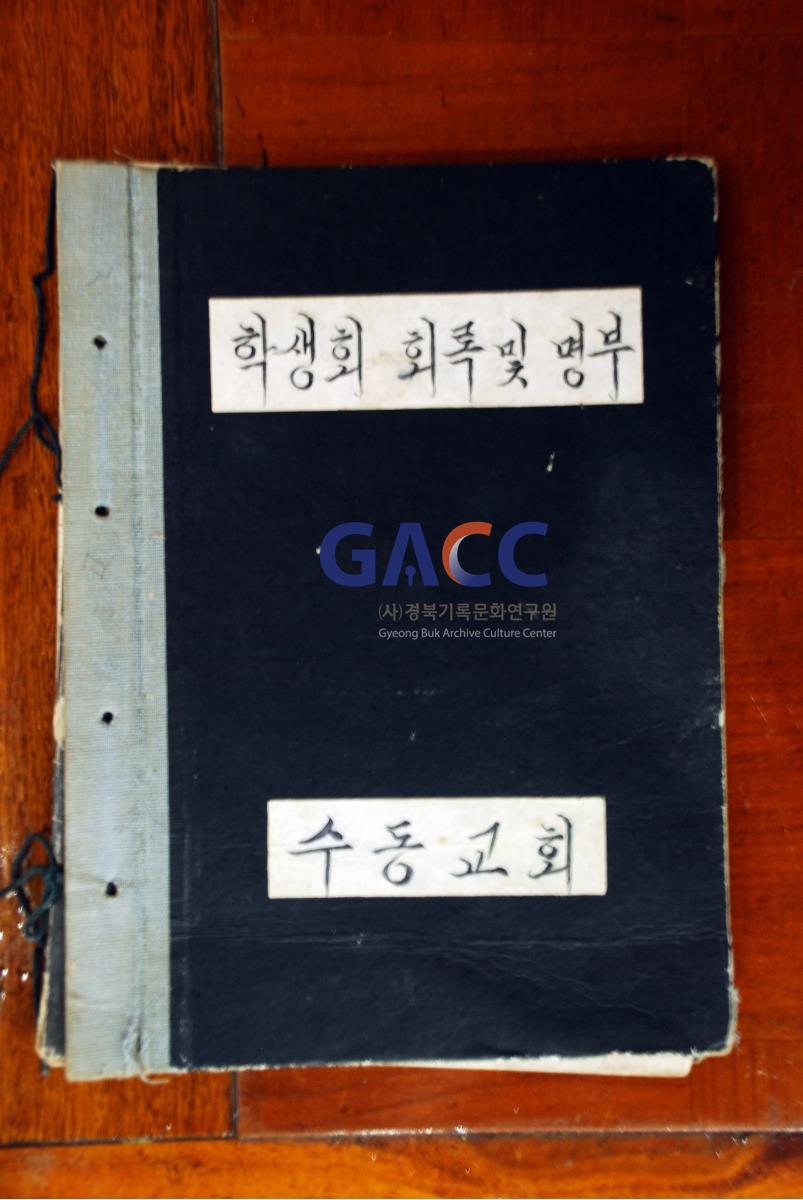 학생회 회록 및 명부
GACC
(사)경북기록문화연구원
Gyeong Buk Archive Culture Center
수동교회